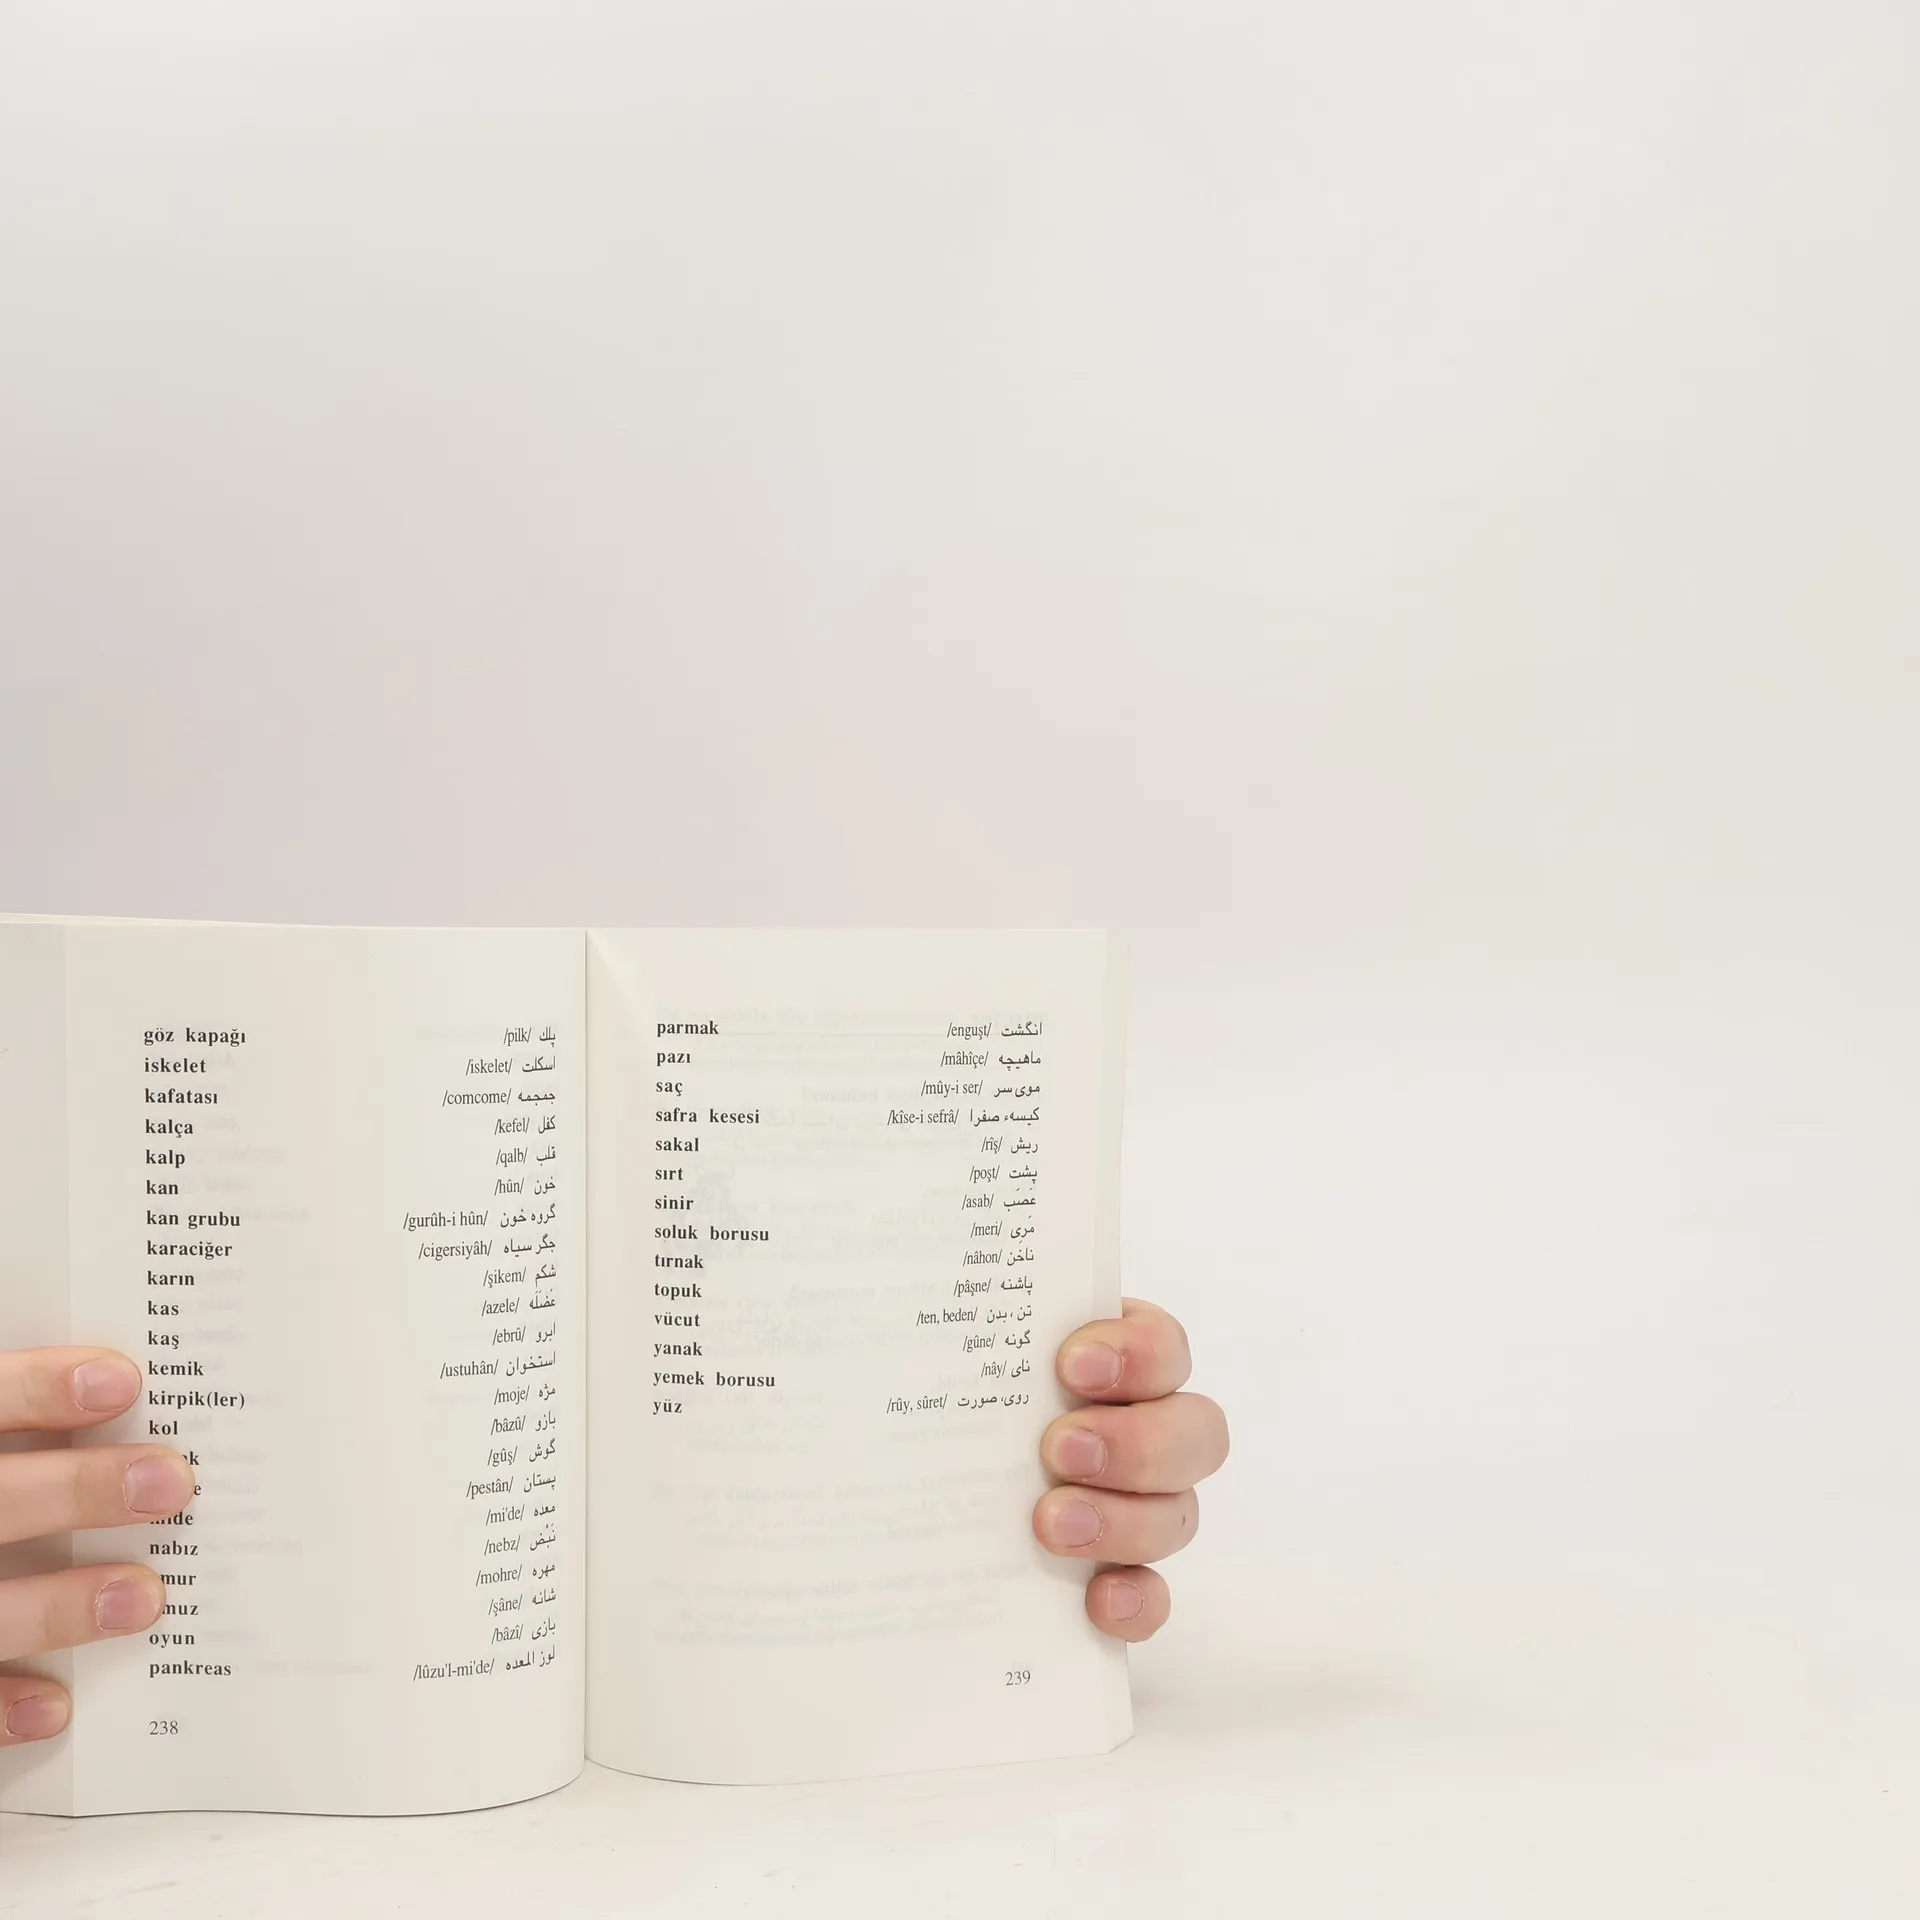 göz kapağı /pilk/ پلك
iskelet /iskelet/ اسكلت
kafatası /comcome/ جمجمه
kalça /kefel/ كفل
kalp /qalb/ قلب
kan /hûn/ خون
kan grubu /gurûh-i hûn/ گروه خون
karaciğer /cigersiyâh/ جگر سياه
karın /şikem/ شكم
kas /azele/ عَضَلَه
kaş /ebrû/ ابرو
kemik /ustuhân/ استخوان
kirpik(ler) /moje/ مژه
kol /bâzû/ بازو
/gûş/ گوش
/pestân/ پستان
/mi'de/ معده
nabız /nebz/ نَبْض
/mohre/ مهره
/şâne/ شانه
oyun /bâzî/ بازى
pankreas /lûzu'l-mi'de/ لوز المعده
238
parmak /enguşt/ انگشت
pazı /mâhîçe/ ماهيچه
saç /mûy-i ser/ موى سر
safra kesesi /kîse-i sefrâ/ كيسهء صفرا
sakal /rîş/ ريش
sırt /poşt/ پشت
sinir /asab/ عَصَب
soluk borusu /meri/ مَرِى
tırnak /nâhon/ ناخُن
topuk /pâşne/ پاشنه
vücut /ten, beden/ تن ، بدن
yanak /gûne/ گونه
yemek borusu /nây/ ناى
yüz /rûy, sûret/ روى، صورت
239